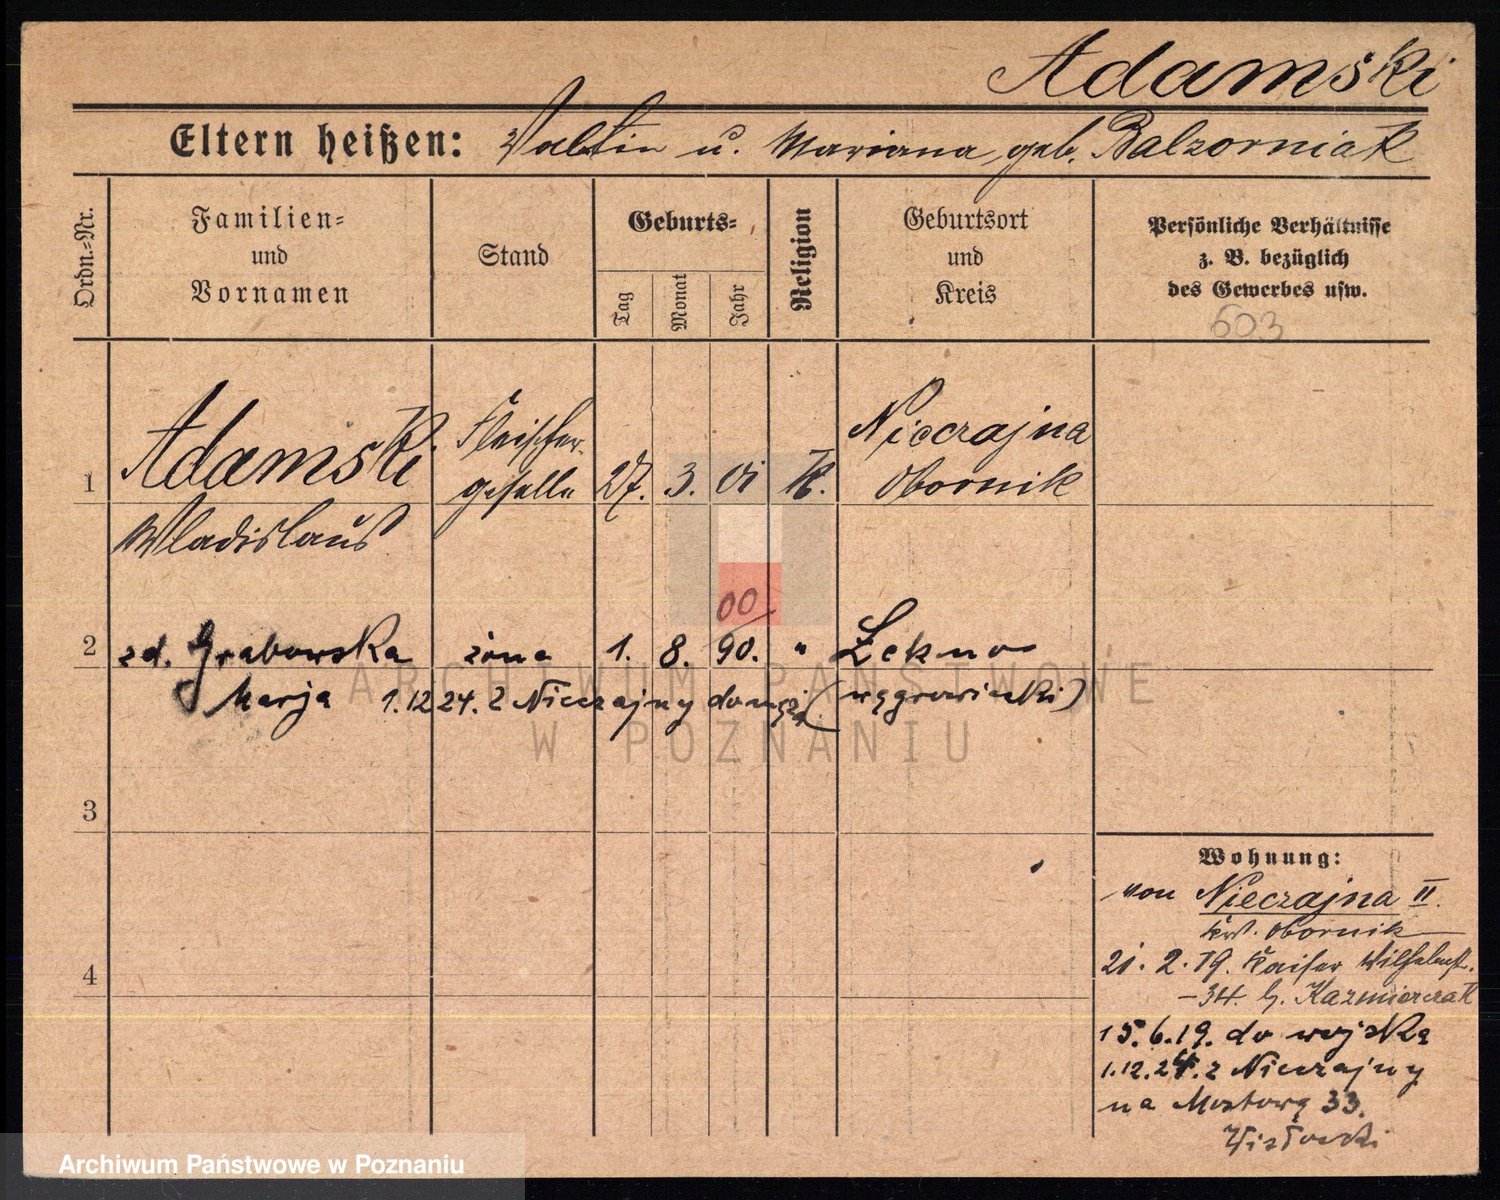 Adamski
Eltern heißen: Valtin u. Mariana, geb. Balzorniak
Ordn.=Nr.
Familien=
und
Vornamen
Stand
Geburts=
Tag
Monat
Jahr
Religion
Geburtsort
und
Kreis
Persönliche Verhältnisse
z. B. bezüglich
des Gewerbes usw.
603
1 Adamski Fleischer- 27. 3. 01 K. Nieczajna
geselle Obornik
Wladislaus
00
2 zd. Grabowska żona 1. 8. 90. " Łekno
Marja 1.12 24. z Nieczajny do męża (wągrowiecki)
3
4
Wohnung:
von Nieczajna II.
Krs. Obornik
21. 2. 19. Kaiser Wilhelmstr.
-34. b. Kazmierczak
15.6.19. do wojska
1.12.24. z Nieczajny
na Mostową 33.
ARCHIWUM PAŃSTWOWE
W POZNANIU
Archiwum Państwowe w Poznaniu